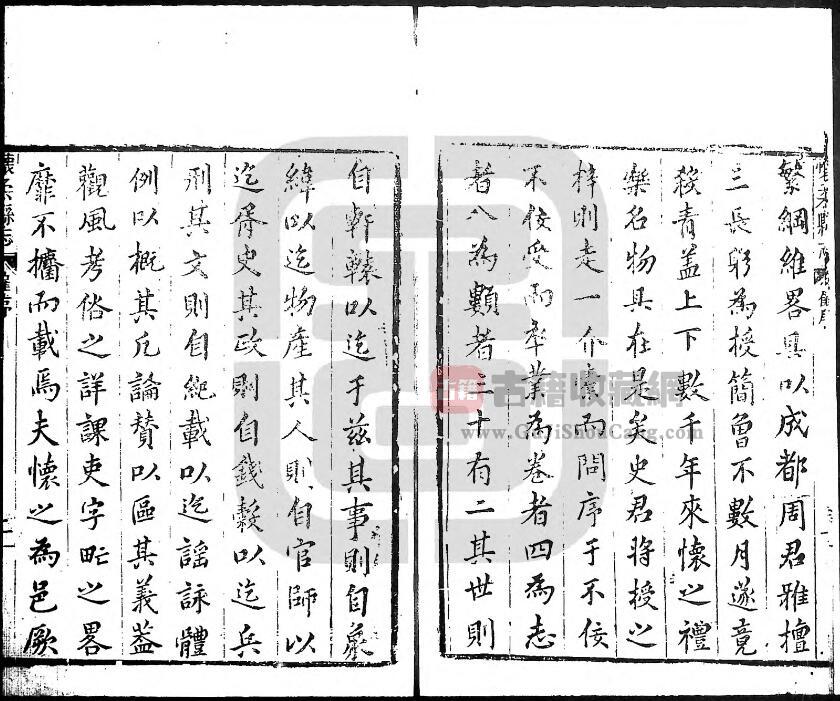 繁綱維畧具以成都周君雅擅
三長躬為授簡曾不數月遂竟
殺青蓋上下數千年來懷之禮
樂名物具在是矣史君將授之
梓則走一介書而問序于不佞
不佞受而卒業為卷者四為志
者八為類者三十有二其世則
自軒轅以迄于茲其事則自象
緯以迄物產其人則自官師以
迄胥史其政則自錢穀以迄兵
刑其文則自紀載以迄謡詠體
例以概其凡論贊以區其義葢
觀風考俗之詳課吏字甿之畧
靡不攟而載焉夫懷之為邑厥
懷柔縣志
古籍
古籍收藏網
www.GujiShouCang.com